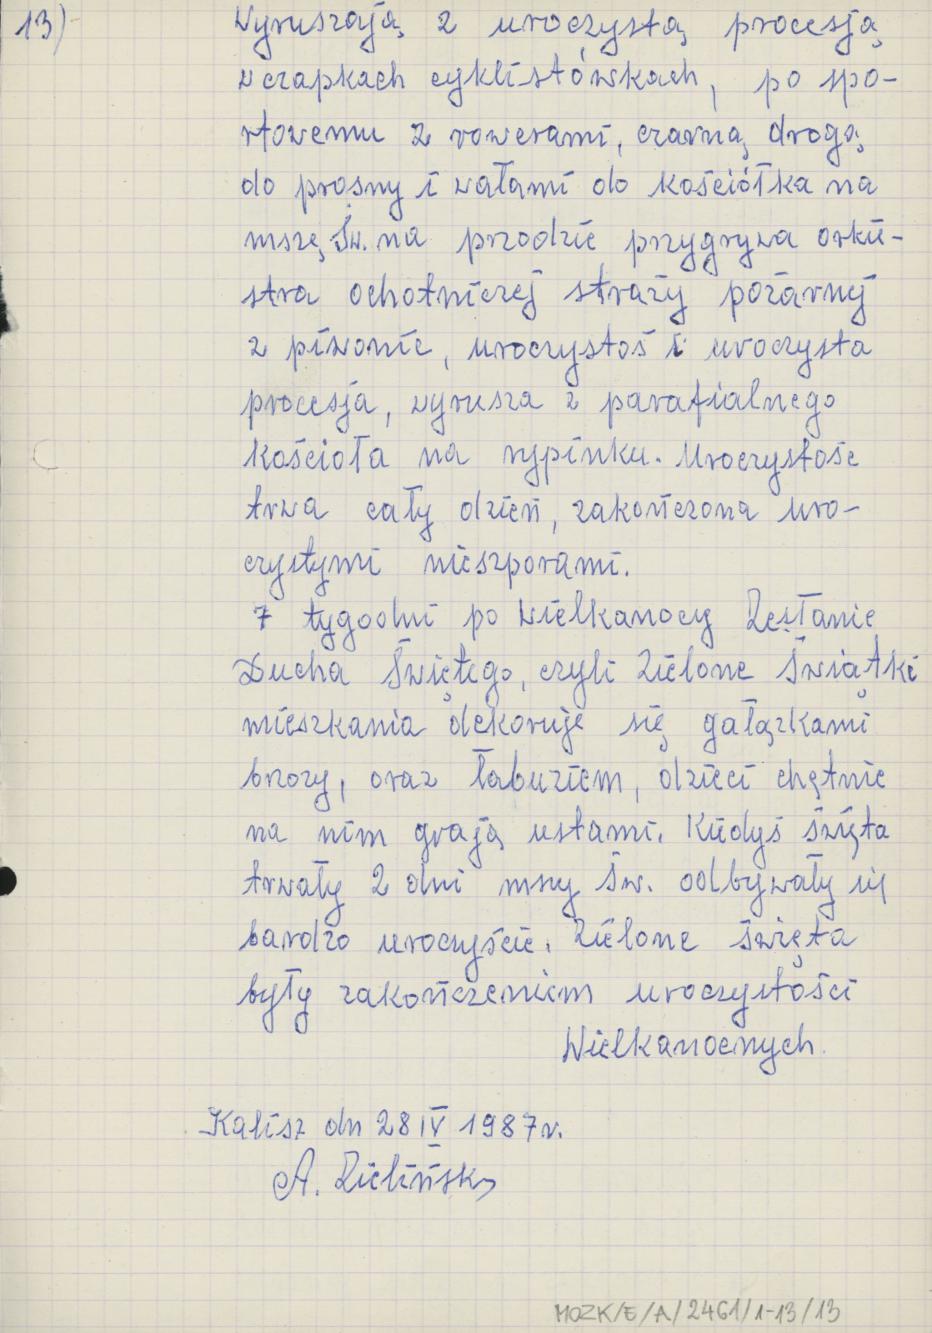 13)
Wyruszają z uroczystą procesją
w czapkach cyklistówkach, po spo-
rtowemu z rowerami, czarną drogą
do prosny i wałami do kościółka na
mszę św. na przodzie przygrywa orkie-
stra ochotniczej straży pożarnej
z piwonic, uroczystoś i uroczysta
procesja, wyrusza z parafialnego
kościoła na rypinku. Uroczystość
trwa cały dzień, zakończona uro-
czystymi nieszporami.
7 tygodni po Wielkanocy Zesłanie
Ducha Świętego, czyli Zielone Świątki
mieszkania dekoruje się gałązkami
brzozy, oraz łabuziem, dzieci chętnie
na nim grają ustami. Kiedyś święta
trwały 2 dni mszy św. odbywały się
bardzo uroczyście. Zielone święta
były zakończeniem uroczystości
Wielkanocnych.
Kalisz dn 28 IV 1987r.
A. Zieliński
MOZK/E/A/2461/1-13/13